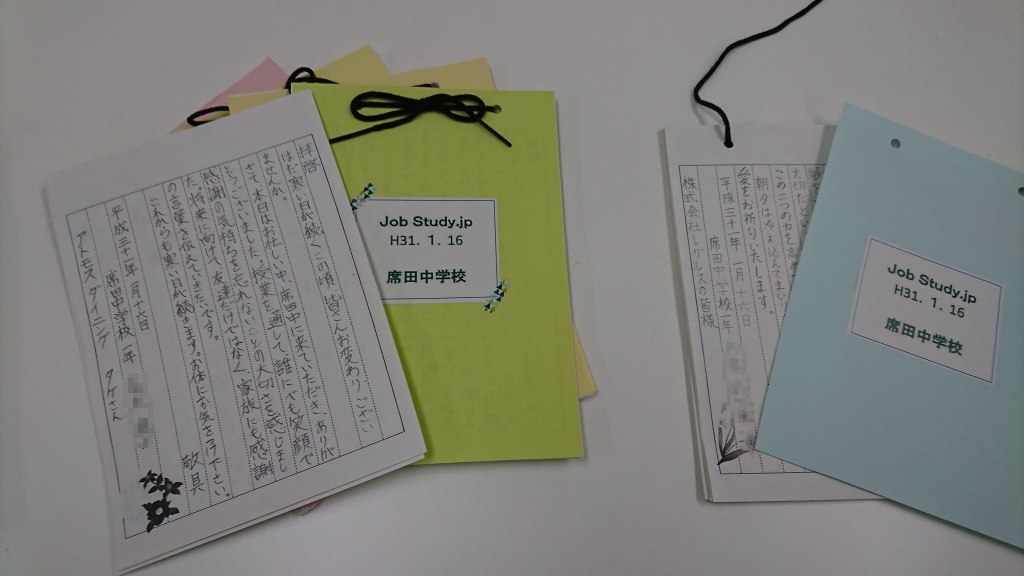 拝啓
はだ寒い日が続くこの頃、皆さんお変わりござい
ませんか。
さて、本日はお忙しい中、席田中に来ていただき、ありが
とうございました。授業を通して、誰にでも笑顔で
感謝の気持ちを忘れないことの大切さを感じまし
た。将来に向けて、友達だけではなく、家族にも感謝
の言葉を伝えていきたいです。
これからも寒い日が続きます。お体にお気をつけ下さい。
敬具
平成三十一年一月十六日
席田中学校一年
アトモスダイニング タケさん
Job Study.jp
H31. 1. 16
席田中学校
この二つの力を
朝夕は冷え込んでまい
愛をお祈りいたします。
平成三十一年 一月十六日
席田中学校一年
株式会社レクルスの皆様
Job Study.jp
H31. 1. 16
席田中学校